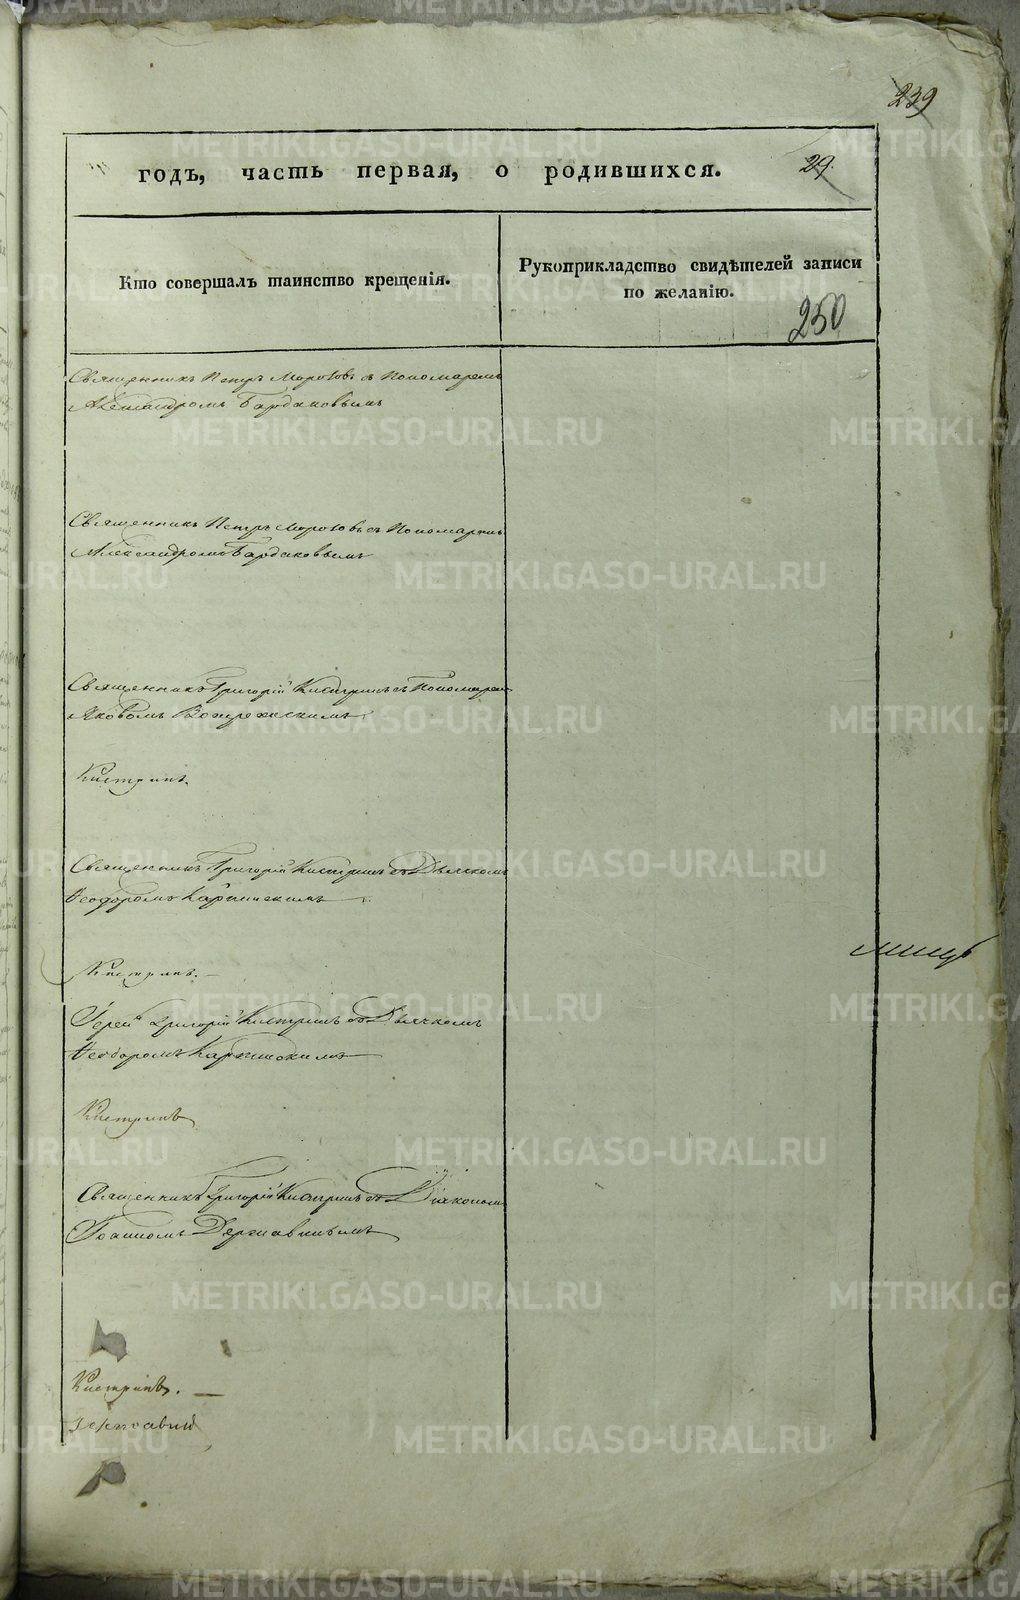 239
годъ, часть первая, о родившихся. 29.
Кто совершалъ таинство крещенія.
Рукоприкладство свидѣтелей записи
по желанію.
250
Священникъ Петръ Морозовъ съ Пономаремъ
Александромъ Бардаковымъ
Священникъ Петръ Морозовъ съ Пономаремъ
Александромъ Бардаковымъ
Священникъ Григорій Кистринъ съ Пономарем
Яковомъ
Кистринъ.
Священникъ Григорій Кистринъ съ Дьячкомъ
Ѳеодоромъ Карпинскимъ
Кистринъ.
Іерей Григорій Кистринъ съ Дьячкомъ
Ѳеодоромъ Карпинскимъ
Кистринъ
Священникъ Григорій Кистринъ съ Діакономъ
Іоанномъ Державинымъ
Кистринъ.
METRIKI.GASO-URAL.RU